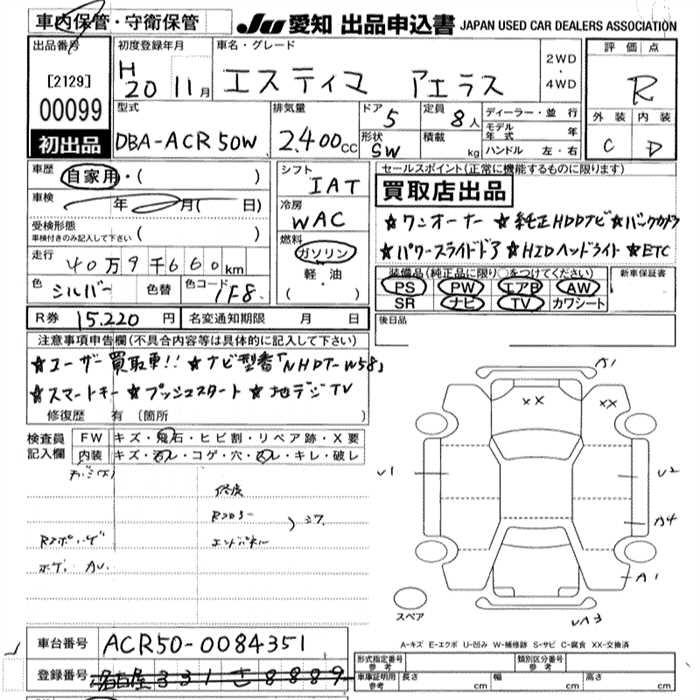 車内保管・守衛保管
JU 愛知 出品申込書 JAPAN USED CAR DEALERS ASSOCIATION
出品番号 初度登録年月 車名・グレード 2WD・4WD 評価点
[2129] H20 11月 エスティマ アエラス R
00099 型式 排気量 ドア 5 定員 8人 ディーラー・並行 外装 内装
初出品 DBA-ACR50W 2.400cc 形状 SW 積載 kg モデル年式 年 ハンドル 左・右 C D
車歴 自家用・( ) シフト IAT セールスポイント(正常に機能するものに限ります)
買取店出品
車検 年 月( 日) 冷房 WAC
★ワンオーナー ★純正HDDナビ ★バックカメラ
受検形態 車検付きのみ記入して下さい ( ) 燃料 ガソリン・軽油・( )
★パワースライドドア ★HIDヘッドライト ★ETC
走行 40万9千660km
装備品(純正品に限り○をつけてください) 新車保証書
色 シルバー 色替 色コード 1F8
PS PW エアB AW
SR ナビ TV カワシート
R券 15.220円 名変通知期限 月 日
後日品
注意事項申告欄(不具合内容等は具体的に記入して下さい)
★ユーザー買取車!! ★ナビ型番「NHDT-W58」
★スマートキー ★プッシュスタート ★地デジTV
修復歴 有 (箇所 )
検査員記入欄 FW キズ・飛石・ヒビ割・リペア跡・X要
内装 キズ・汚レ・コゲ・穴・スレ・キレ・破レ
A1
XX XX
U1 U2
A4
A1
UA3
スペア
A-キズ E-エクボ U-凹み W-補修跡 S-サビ C-腐食 XX-交換済
車台番号 ACR50-0084351
登録番号 名古屋 331 8889
形式指定番号 参考 類別区分番号 参考
車庫証明用 参考 長さ cm 幅 cm 高さ cm